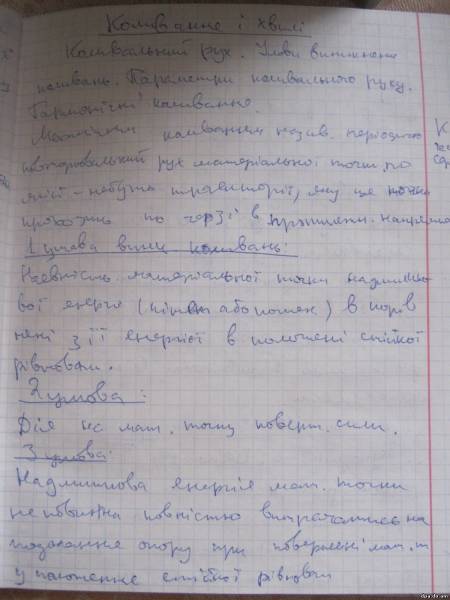 Коливання і хвилі
Коливальний рух. Умови виникнення
коливань. Параметри коливального руху.
Гармонічні коливання.
Механічним коливанням назив. періодично
повторювальний рух матеріальної точки по
якій-небудь траекторії, яку ця точка
проходить по черзі в протилежн. напрямках
1 умова виник коливань:
Наевність матеріальної точки надлишко
вої енергії (кінен або потен) в порів
нені з її енергієї в положені стійкої
рівноваги.
2 умова:
Дія на мат. точку поверт. сили.
3 умова:
Надлишкова енергія мат. точки
не повинна повністю витрачатись на
подолання опору при повернені мат. т
у положення стійкої рівноваги